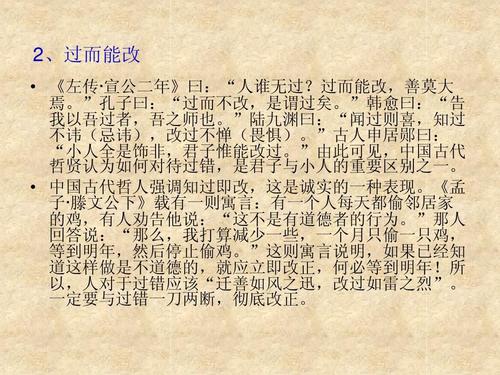 2、过而能改
• 《左传·宣公二年》曰：“人谁无过？过而能改，善莫大
焉。”孔子曰：“过而不改，是谓过矣。”韩愈曰：“告
我以吾过者，吾之师也。”陆九渊曰：“闻过则喜，知过
不讳（忌讳），改过不惮（畏惧）。”古人申居郧曰：
“小人全是饰非，君子惟能改过。”由此可见，中国古代
哲贤认为如何对待过错，是君子与小人的重要区别之一。
• 中国古代哲人强调知过即改，这是诚实的一种表现。《孟
子·滕文公下》载有一则寓言：有一个人每天都偷邻居家
的鸡，有人劝告他说：“这不是有道德者的行为。”那人
回答说：“那么，我打算减少一些，一个月只偷一只鸡，
等到明年，然后停止偷鸡。”这则寓言说明，如果已经知
道这样做是不道德的，就应立即改正，何必等到明年！所
以，人对于过错应该“迁善如风之迅，改过如雷之烈”。
一定要与过错一刀两断，彻底改正。